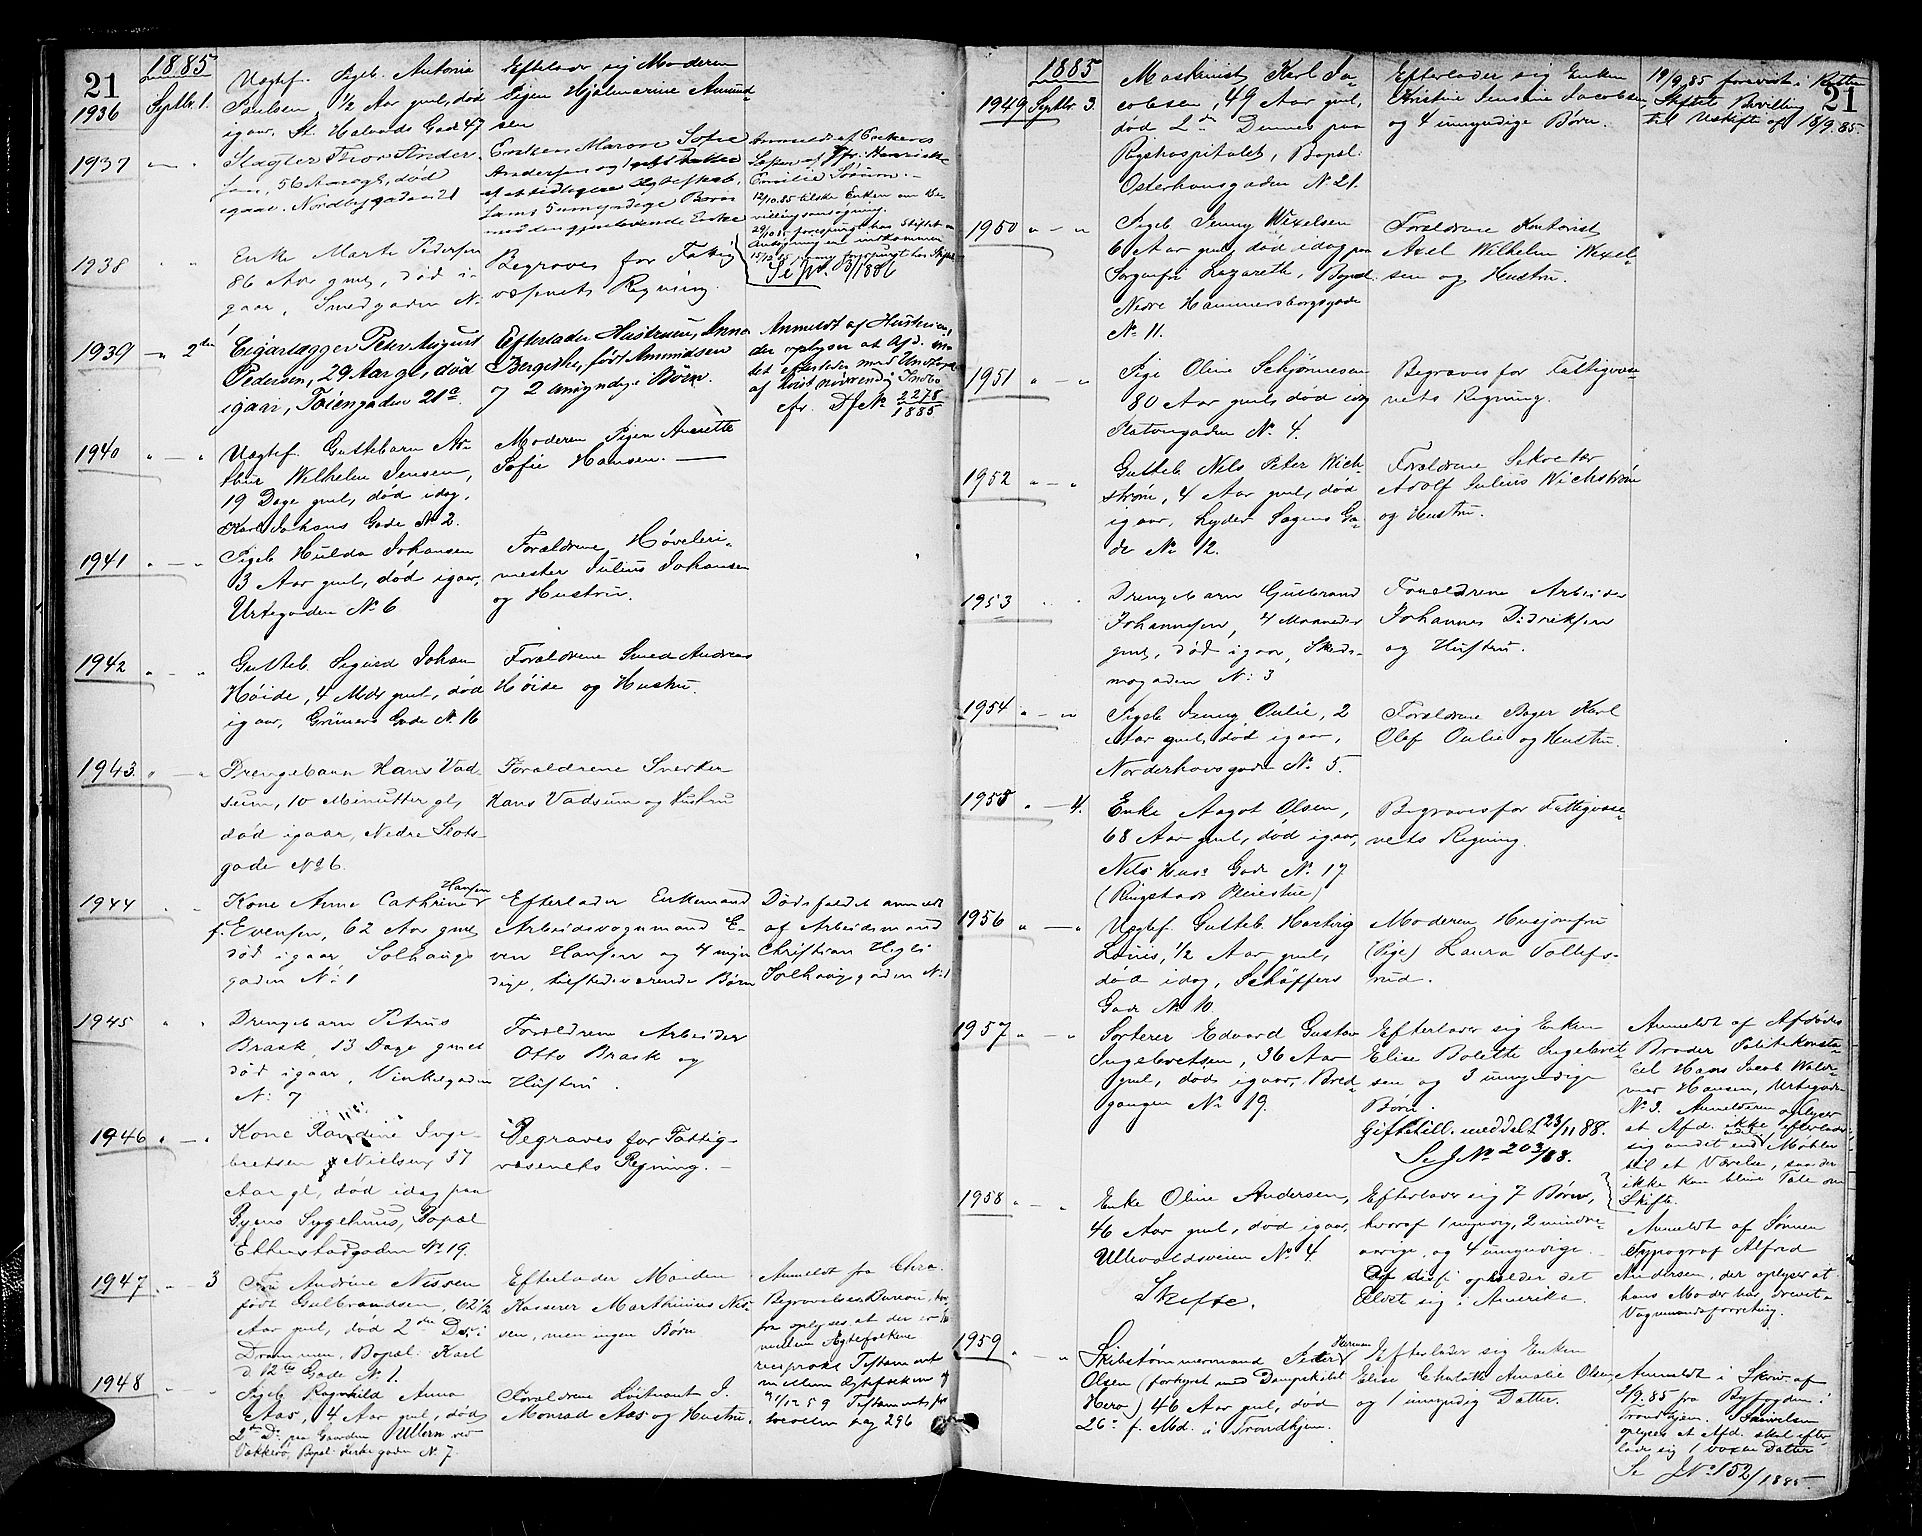 21
1885
1936 Septbr. 1.
Uægtef. Pigeb. Antonie
Paulsen, 1/2 Aar gml, død
igaar, St. Halvards Gade 47
Efterlader sig Moderen
Pigen Hjalmarine Amund-
sen
1937 " — "
Slagter Thor Ander-
sen, 56 Aar gl, død
igaar. Nordbygaden 21
Enken Maren Sofie
Andersen og
af tidligere Ægteskab,
samt 5 umyndige Børn
med den gjenlevende Enke
Anmeldt af Enkens
Emilie
12/10.85 tilsk. Enken om Be-
villingsansøgning.
Se J.N. 3/1886
1938 " "
Enke Marte Pedersen
86 Aar gml, død i-
gaar, Smedgaden N.
Begraves for Fattig-
væsenets Regning.
1939 — " 2den
Cigarlægger Peter August
Pedersen, 29 Aar gl, død
igaar, Tøiengaden 21a
Efterlader Hustruen, Anna
Bergithe, født Amundsen
og 2 umyndige Børn.
Anmeldt af Hustruen,
der oplyser at Afd. In-
tet efterlader med Undtagelse
af høist nødvendig Indbo
cfr. Df No 2278/1885
1940 " — "
Uægtef. Guttebarn Ar-
thur Wilhelm Jensen,
19 Dage gml, død idag,
Karl Johans Gade No 2.
Moderen Pigen Anette
Sofie Hansen. —
1941 " — "
Pigeb. Hulda Johansen
3 Aar gml, død igaar,
Urtegaden No 6
Forældrene Høvleri-
mester Julius Johansen
og Hustru.
1942 " — "
Gutteb. Sigurd Johan
Høide, 4 Mdr gml, død
igaar, Grüners Gade N. 16
Forældrene Smed Andreas
Høide og Hustru.
1943. " — "
Drengebarn Hans Vad-
sum, 10 Minutter gl,
død igaar, Nedre Slots-
gade No 6.
Forældrene Snerker
Hans Vadsum og Hustru
1944 " "
Kone Anne Cathrine Hansen
f. Evensen, 62 Aar gml
død igaar, Solhaugs-
gaden No 1
Efterlader Enkemand
Arbeidsvognmand E-
ven Hansen og 4 myn-
dige, tilstedeværende Børn
Dødsfaldet anmeldt
af Arbeidsmand
Christian
Solhauggaden No 1
1945 " "
Drengebarn Petrus
Brask, 13 Dage gml
død igaar, Vinkelgaden
N: 7
Forældrene Arbeider
Otto Brask og
Hustru.
1946 " — "
Kone Randine Inge-
bretsen f. Nielsen, 57
Aar gl, død idag paa
Byens Sygehus, Bopæl
Ekkerstadgaden No 19.
Begraves for Fattig-
væsenets Regning. —
1947 " — 3
Fru Andrine Nissen
født Gulbrandsen, 62 1/2
Aar gml, død 2den Ds. i
Drammen, Bopæl: Karl
d. 12tes Gade No 1.
Efterlader Manden
Kasserer Marthinius Nis-
sen, men ingen Børn
Anmeldt fra Chra.
Begravelses Bureau, hvor-
fra oplyses at der er
mellem Ægtefolkene
reciprokt Testament
1948 " "
Pigeb. Ragnhild Anna
Aas, 4 Aar gml, død
2den Ds. paa Gaarden Ullern ved
Vækkerø, Bopæl: Kirkegaden N. 7.
Forældrene Løitnant J.
Monrad Aas og Hustru.
21
1885
1949 Septbr. 3.
Maskinist Karl Ja-
cobsen, 49 Aar gml,
død 2den Dennes paa
Rigshospitalet, Bopæl:
Osterhausgaden N. 21.
Efterlader sig Enken
Kristine Jensine Jacobsen
og 4 umyndige Børn.
19/9.85 forevist i Retten
Skiftets Bevilling
til Uskifte af 18/9.85.
1950 " — "
Pigeb. Jenny Wexelsen
6 Aar gml, død idag paa
Sorgenfri Lazareth, Bopæl:
Nedre Hammersborgsgade
No 11.
Forældrene Kontorist
Axel Wilhelm Wexel-
sen og Hustru.
1951 " — "
Pige Oline Schjønnesen
80 Aar gml, død idag
Platousgaden No 4.
Begraves for Fattigvæse-
nets Regning.
1952 " — "
Gutteb. Nils Peter Wich-
strøm, 4 Aar gml, død
igaar, Lyder Sagens Ga-
de No 12.
Forældrene Sekretær
Adolf Julius Wichstrøm
og Hustru.
1953 " "
Drengebarn Gulbrand
Johannesen, 4 Maaneder
gml, død igaar, Skeds-
mogaden N: 3
Forældrene Arbeider
Johannes Didriksen
og Hustru.
1954 " — "
Pigeb. Jenny Oulie, 2
Aar gml, død igaar,
Norderhovsgade No 5.
Forældrene Bager Karl
Olaf Oulie og Hustru.
1955 " — 4.
Enke Aagot Olsen,
68 Aar gml, død igaar,
Nils Hus's Gade No 17
(Ringstads Pleiestue)
Begraves for Fattigvæse-
nets Regning.
1956 " — "
Uægtef. Gutteb. Hartvig
Louis, 1/2 Aar gml,
død idag, Schäffers
Gade No 10
Moderen Husjomfru
(Pige) Laura Tollefs-
rud.
1957 " — "
Sorterer Edvard Gustav
Ingebretsen, 36 Aar
gml, død igaar, Bred-
gangen No 19.
Efterlader sig Enken
Elise Bolette Ingebret-
sen og 3 umyndige
Børn.
Giftetill. meddelt 23/11 88.
Se J No 203/88.
Anmeldt af Afdødes
Broder Politikonsta-
bel Hans Jacob Walde-
mar Hansen, Urtegaden
No 3. Anmelderen oplyser
at Afd. ikke efterlader
sig andet end Møbler
til et Værelse, saa der
ikke kan blive Tale om
Skifte.
1958 " — "
Enke Oline Andersen,
46 Aar gml, død igaar,
Ullevoldsveien No 4.
Skifte.
Efterlader sig 7 Børn,
hvoraf 1 myndig, 2 mindre-
aarige og 4 umyndige. —
opholder det
Eldste sig i Amerika.
Anmeldt af Sønnen
Typograf Alfred
Andersen, der oplyser at
hans Moder har drevet
Vognmandsforretning.
1959 " — "
Skibstømmermand Peder Herman
Olsen (forhyret med Dampskibet
Hero) 46 Aar gml, død
26de f. Md. i Trondhjem.
Efterlader sig Enken
Elise Charlotte Amalie Olsen
og 1 umyndig Datter.
Anmeldt i Skriv. af
2/9.85 fra Byfogden i
Trondhjem. Skrivelsen
oplyser at Afd. skal efter-
lade sig 1 voxen Datter
Se J No 152/1885.